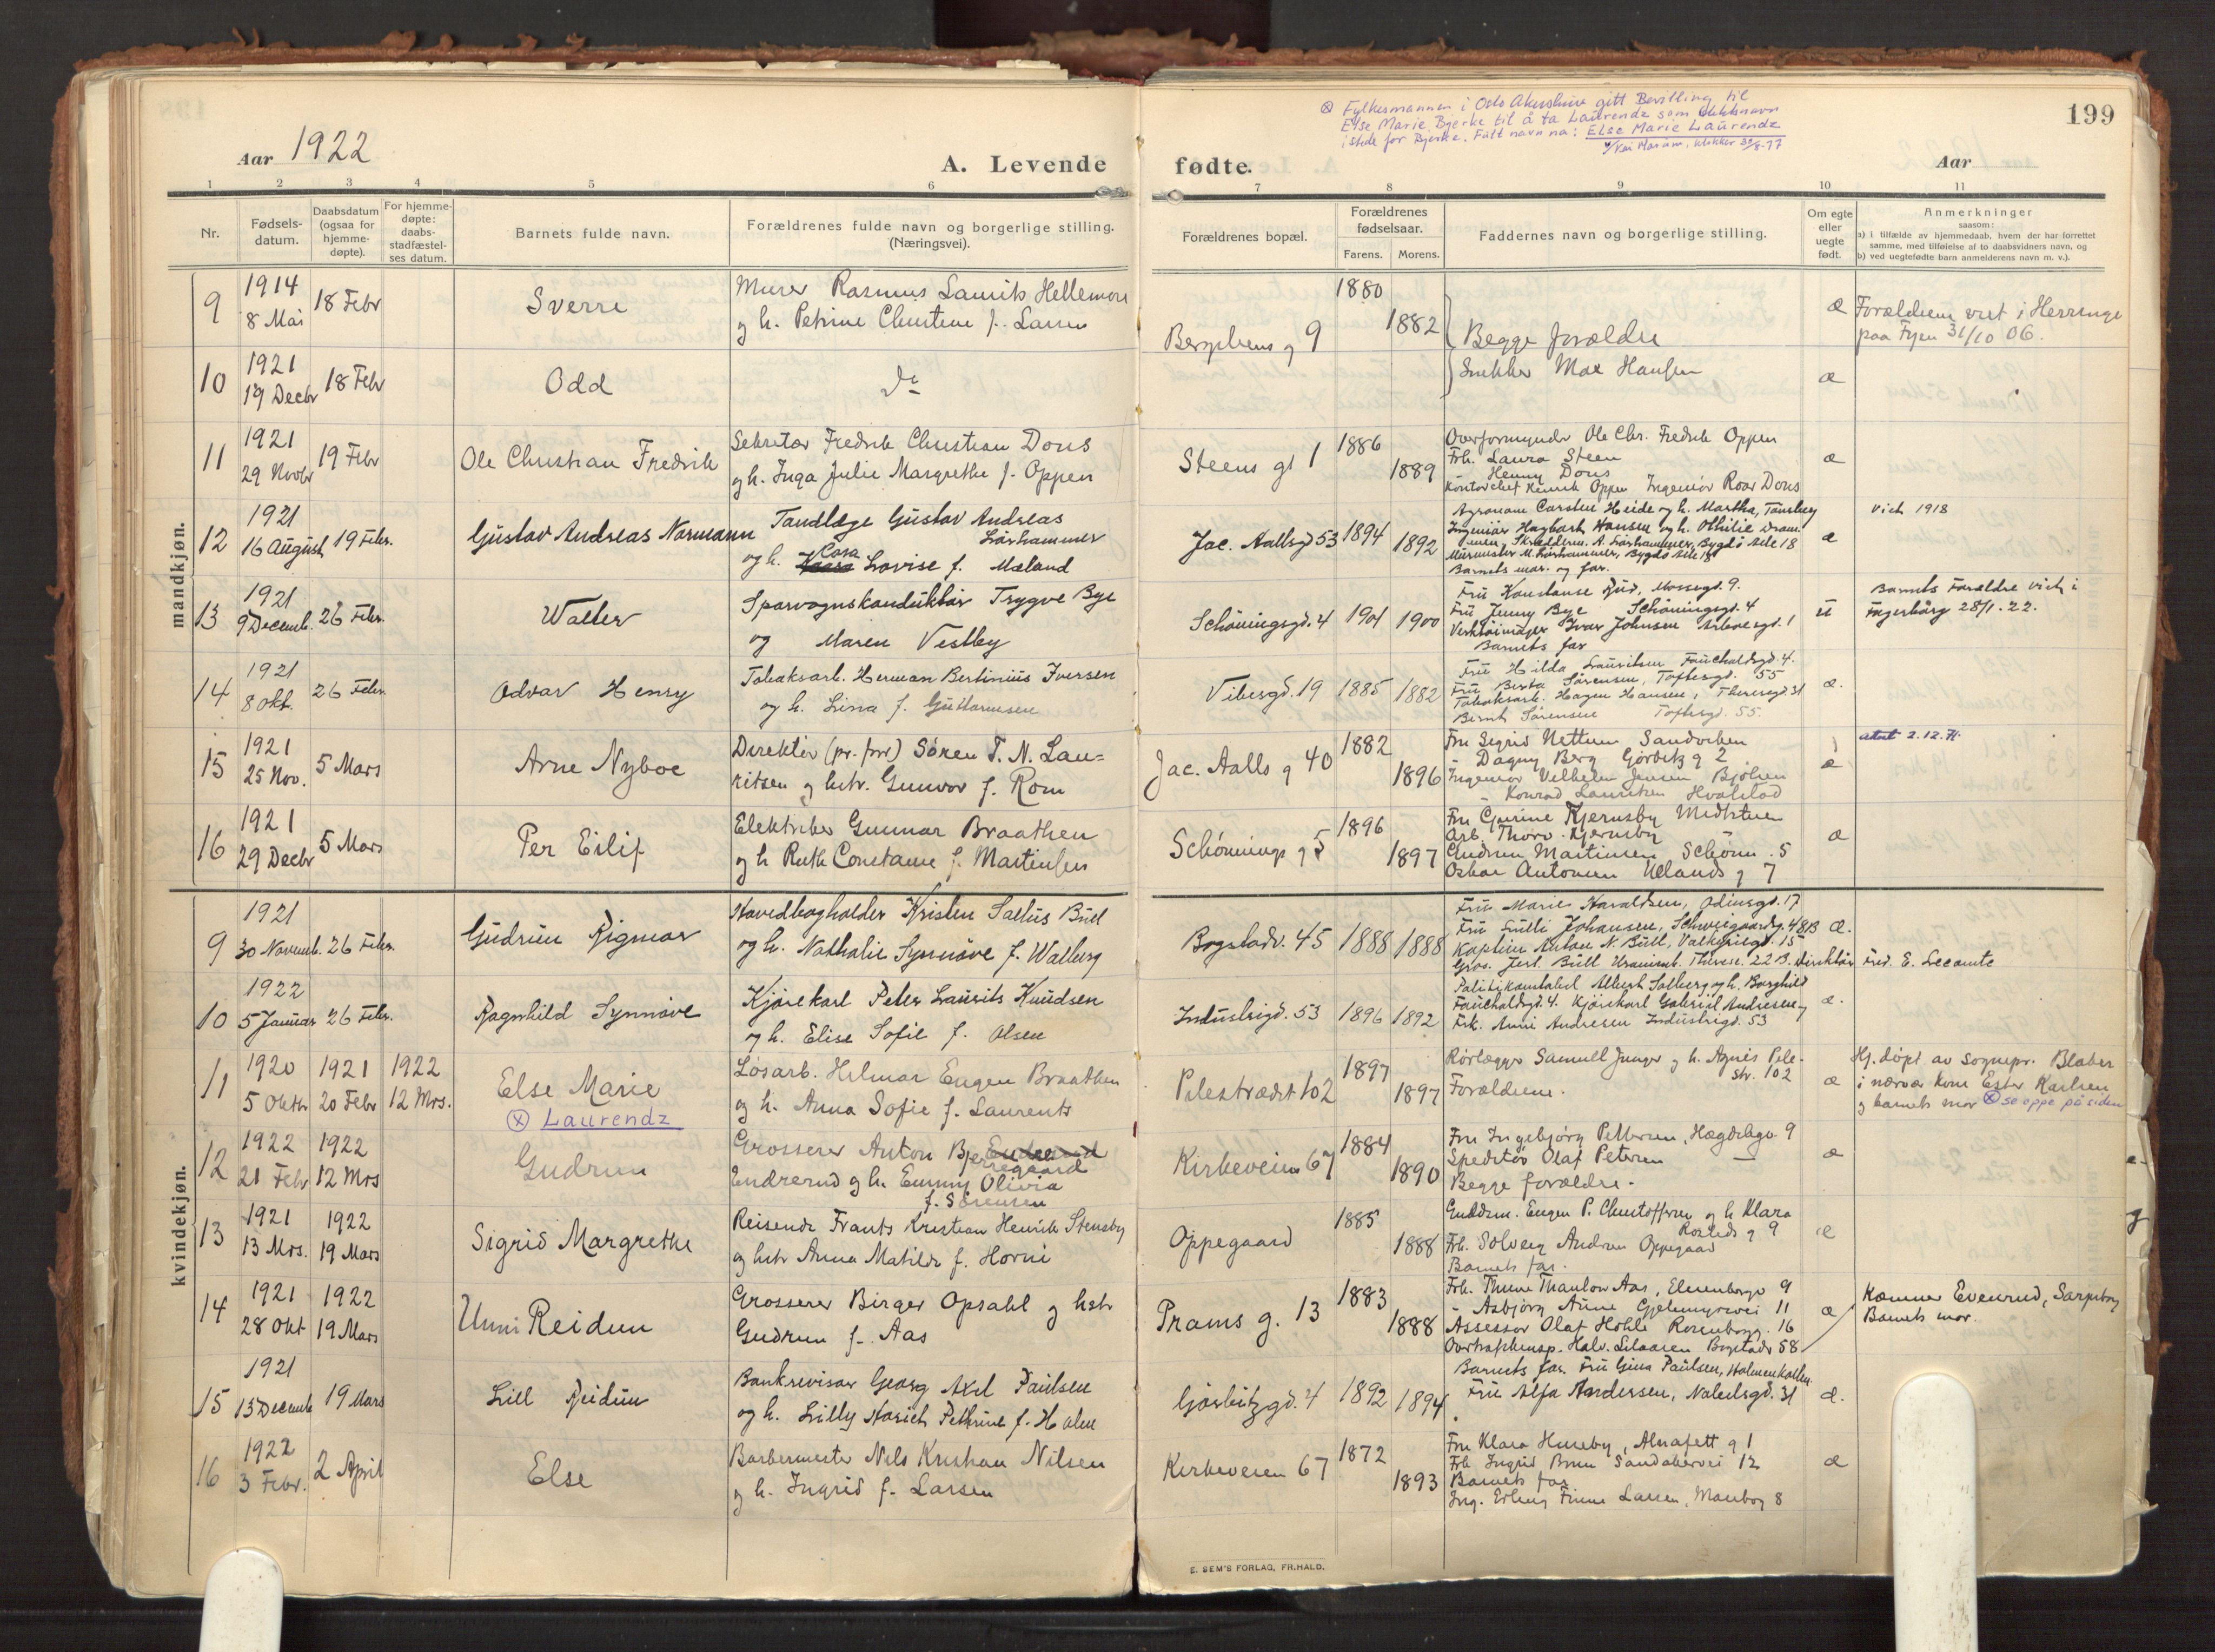 199
Aar 1922
A. Levende fødte.
Aar
⊗ Fylkesmannen i Oslo Akershus gitt Bevilling til
Else Marie Bjerke til å ta Laurendz som slektsnavn
istede for Bjerke. Fullt navn nå: Else Marie Laurendz
klokker 30/8-77
1 2 3 4 5 6 7 8 9 10 11
Nr.
Fødselsdatum.
Daabsdatum (ogsaa for hjemmedøpte).
For hjemmedøpte: daabsstadfæstelses datum.
Barnets fulde navn.
Forældrenes fulde navn og borgerlige stilling.
(Næringsvei).
Forældrenes bopæl.
Forældrenes fødselsaar.
Farens. Morens.
Faddernes navn og borgerlige stilling.
Om egte eller uegte født.
Anmerkninger
saasom:
a) i tilfælde av hjemmedaab, hvem der har forrettet
samme, med tilføielse af to daabsvidners navn, og
b) ved uegtefødte barn anmelderens navn m. v.).
mandkjøn.
9 1914 8 Mai 18 Febr Sverre
Murer Rasmus Laurits
og h. Petrine Christine f. Larsen
9 1880 1882
Begge forældre
Snekker Max Hansen
æ Forældrene viet i Herringe
paa Fyen 31/10 06.
10 1921 19 Decbr 18 Febr Odd
do
æ
11 1921 29 Novbr 19 Febr Ole Christian Fredrik
Sekretær Fredrik Christian Dons
og h. Inga Julie Margrethe f. Oppen
Steens gt 1 1886 1889
Overformynder Ole Chr. Fredrik Oppen
Frk. Laura Steen
Henny Dons
Kontorchef Henrik Oppen Ingeniør Roar Dons
æ
12 1921 16 August 19 Febr. Gustav Andreas Normann
Tandlæge Gustav Andreas
og h. Cora Lovise f. Mæland
Jac. Aallsgd 53 1894 1892
Agronom Carsten Heide og h. Martha, Tønsberg
Ingeniør Hagbart Hansen og h. Othilie Dram-
Barnets mor og far.
æ Viet 1918
13 1921 9 Decemb. 26 Febr. Walter
Sporvognskonduktør Trygve Bye
og Maren Vestby
Schøningsgd. 4 1901 1900
Fru Konstanse Rud, Mossegd. 9.
Fru Jenny Bye Schøningsgd. 4
Verktøimager Ivar Johnsen
Barnets far
u Barnets Forældre viet i
Fagerborg 28/1. 22.
14 1921 8 Okt. 26 Febr. Odvar Henry
Tobaksarb. Herman Bertinius Iversen
og h. Lina f. Guttormsen
Vibesgd. 19 1885 1882
Fru Hilda Lauritsen Fauchaldsgd. 4.
Fru Berta Sørensen, Toftesgd. 55
Tobaksarb. Hagen Hansen, Theresegd. 31
Bernt Sørensen Toftesgd. 55.
æ.
15 1921 25 Nov. 5 Mars Arne Nyboe
Direktør Søren T. N. Lau-
ritsen og hstr. Gunvor f. Rom
Jac. Aalls g 40 1882 1896
Fru Sigrid Nettum
Dagny Berg Gørbitz g 2
Ingeniør Vilhelm Jensen Bjølsen
Konrad Lauritzen Hvalstad
æ attest 2.12.71.
16 1921 29 Decbr 5 Mars Per Eilif
Elektriker Gunnar Braathen
og h Ruth Constance f. Martinsen
Schønnings g 5 1896 1897
Fru Kjernsby
Arb. Thorv. Kjernsby
Gudrun Martinsen Schønn. 5
Oskar Antonsen Uelands g 7
æ
kvindekjøn.
9 1921 30 Novemb. 26 Febr. Gudrun Rigmor
Hovedbogholder Kristen Bull
og h. Nathalie Synnøve f. Walberg
Bogstadv. 45 1888 1888
Fru Marie Haraldsen, Odinsgd. 17
Fru Lulli Johansen, Schweigaardsg. 48B
Kaptein Anton N. Bull, Valkyriegd. 15
æ.
Fred. E. Lecomte
10 1922 5 Januar 26 Febr. Ragnhild Synnøve
Kjørekarl Peter Laurits Knudsen
og h. Elise Sofie f. Olsen
Industrigd. 53 1896 1892
Politikonstabel Albert Solberg og h. Borghild
Fauchaldsgd. 4. Kjørekarl Gabriel Andresen og
Frk. Anni Andresen Industrigd. 53
æ.
11 1920 5 Oktbr 1921 20 Febr 1922 12 Mrs. Else Marie
⊗ Laurendz
Løsarb. Hilmar Eugen Braathen
og h. Anna Sofie f. Laurentz
Pilestrædet 102 1897 1897
Rørlægger Samuell Junger og h. Agnes Pile-
str. 102
Forældrene.
æ Hj. døpt av sognepr. Blaker
i nærvær kone Ester Karlsen
og barnets mor ⊗ se oppe på siden
12 1922 21 Febr 1922 12 Mrs Gudrun
Grosserer Anton Bjerregaard
Endrerud og h. Emmy Olivia
f. Sørensen
Kirkeveien 67 1884 1890
Fru Ingebjørg Pettersen, 9
Speditør Olaf Petersen
Begge forældre.
æ
13 1921 13 Mrs. 1922 19 Mars Sigrid Margrethe
Reisende Frants Kristian Henrik Stensby
og hstr Anna Matilde f. Horni
Oppegaard 1885 1888
Guldsm. Eugen P. Christoffersen og h Klara
9
Frk. Solveig Andersen Oppegaard
Barnets far.
æ
14 1921 28 Okt 1922 19 Mars Unni Reidun
Grosserer Birger Opsahl og hstr
Gudrun f. Aas
Prams g. 13 1883 1888
Frk. Thaulow Aas, 9
Asbjørg Aune 11
Assessor Olaf Holtle Rosenborg. 16
Bogstadv 58
æ Kæmner Evenrud, Sarpsborg
Barnets mor.
15 1921 13 Decemb 19 Mars Lill Reidun
Bankrevisor Georg Axel Paulsen
og h. Lilly Harriet Pettrine f. Holm
Gørbitzgd. 4 1892 1894
Barnets far. Fru Gina Paulsen, Holmenkollen.
Fru Alfa Andersen, 31
æ.
16 1922 3 Febr. 2 April Else
Barbermester Nils Kristian Nilsen
og h. Ingrid f. Larsen
Kirkeveien 67 1872 1893
Fru Klara Huseby, Almafett g 1
Frk Ingrid Brun Sandakervei 12
Barnets far
Ing. Erling Finne Larsen, 8
æ
E. SEM'S FORLAG, FR.HALD.